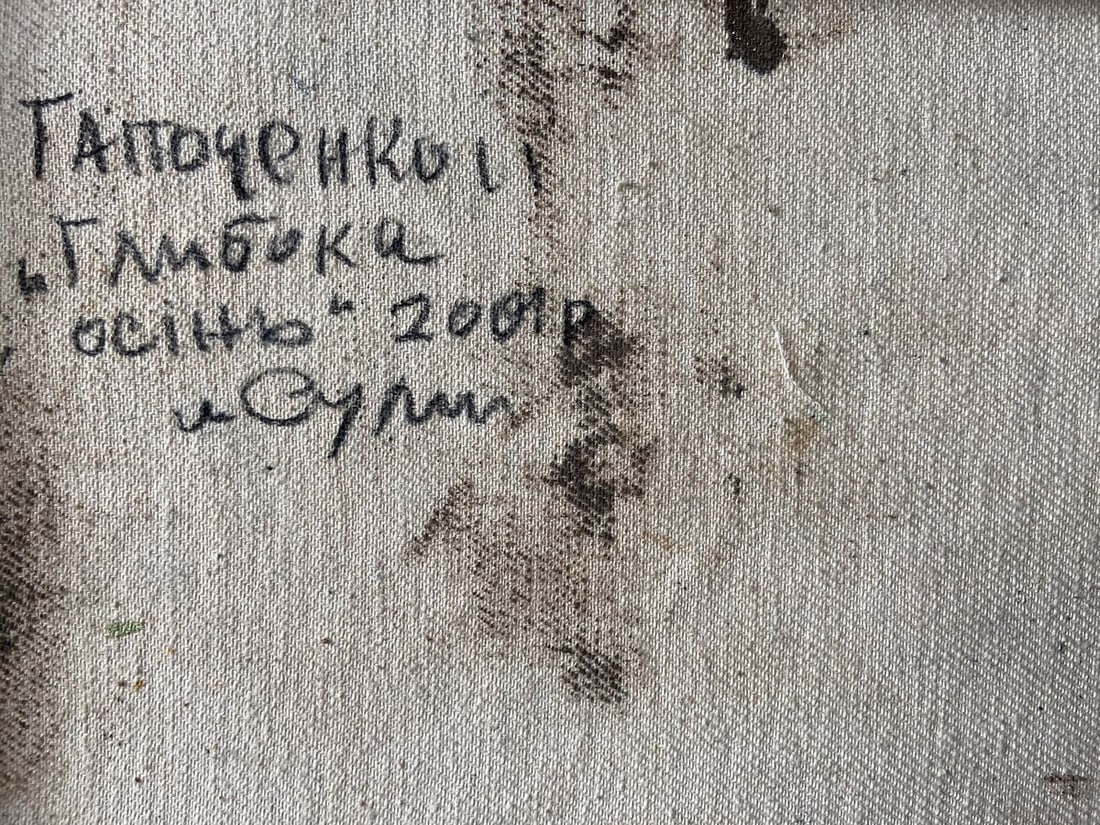 Гапоченко І І
„Глибока
осінь" 2001 р
м Суми